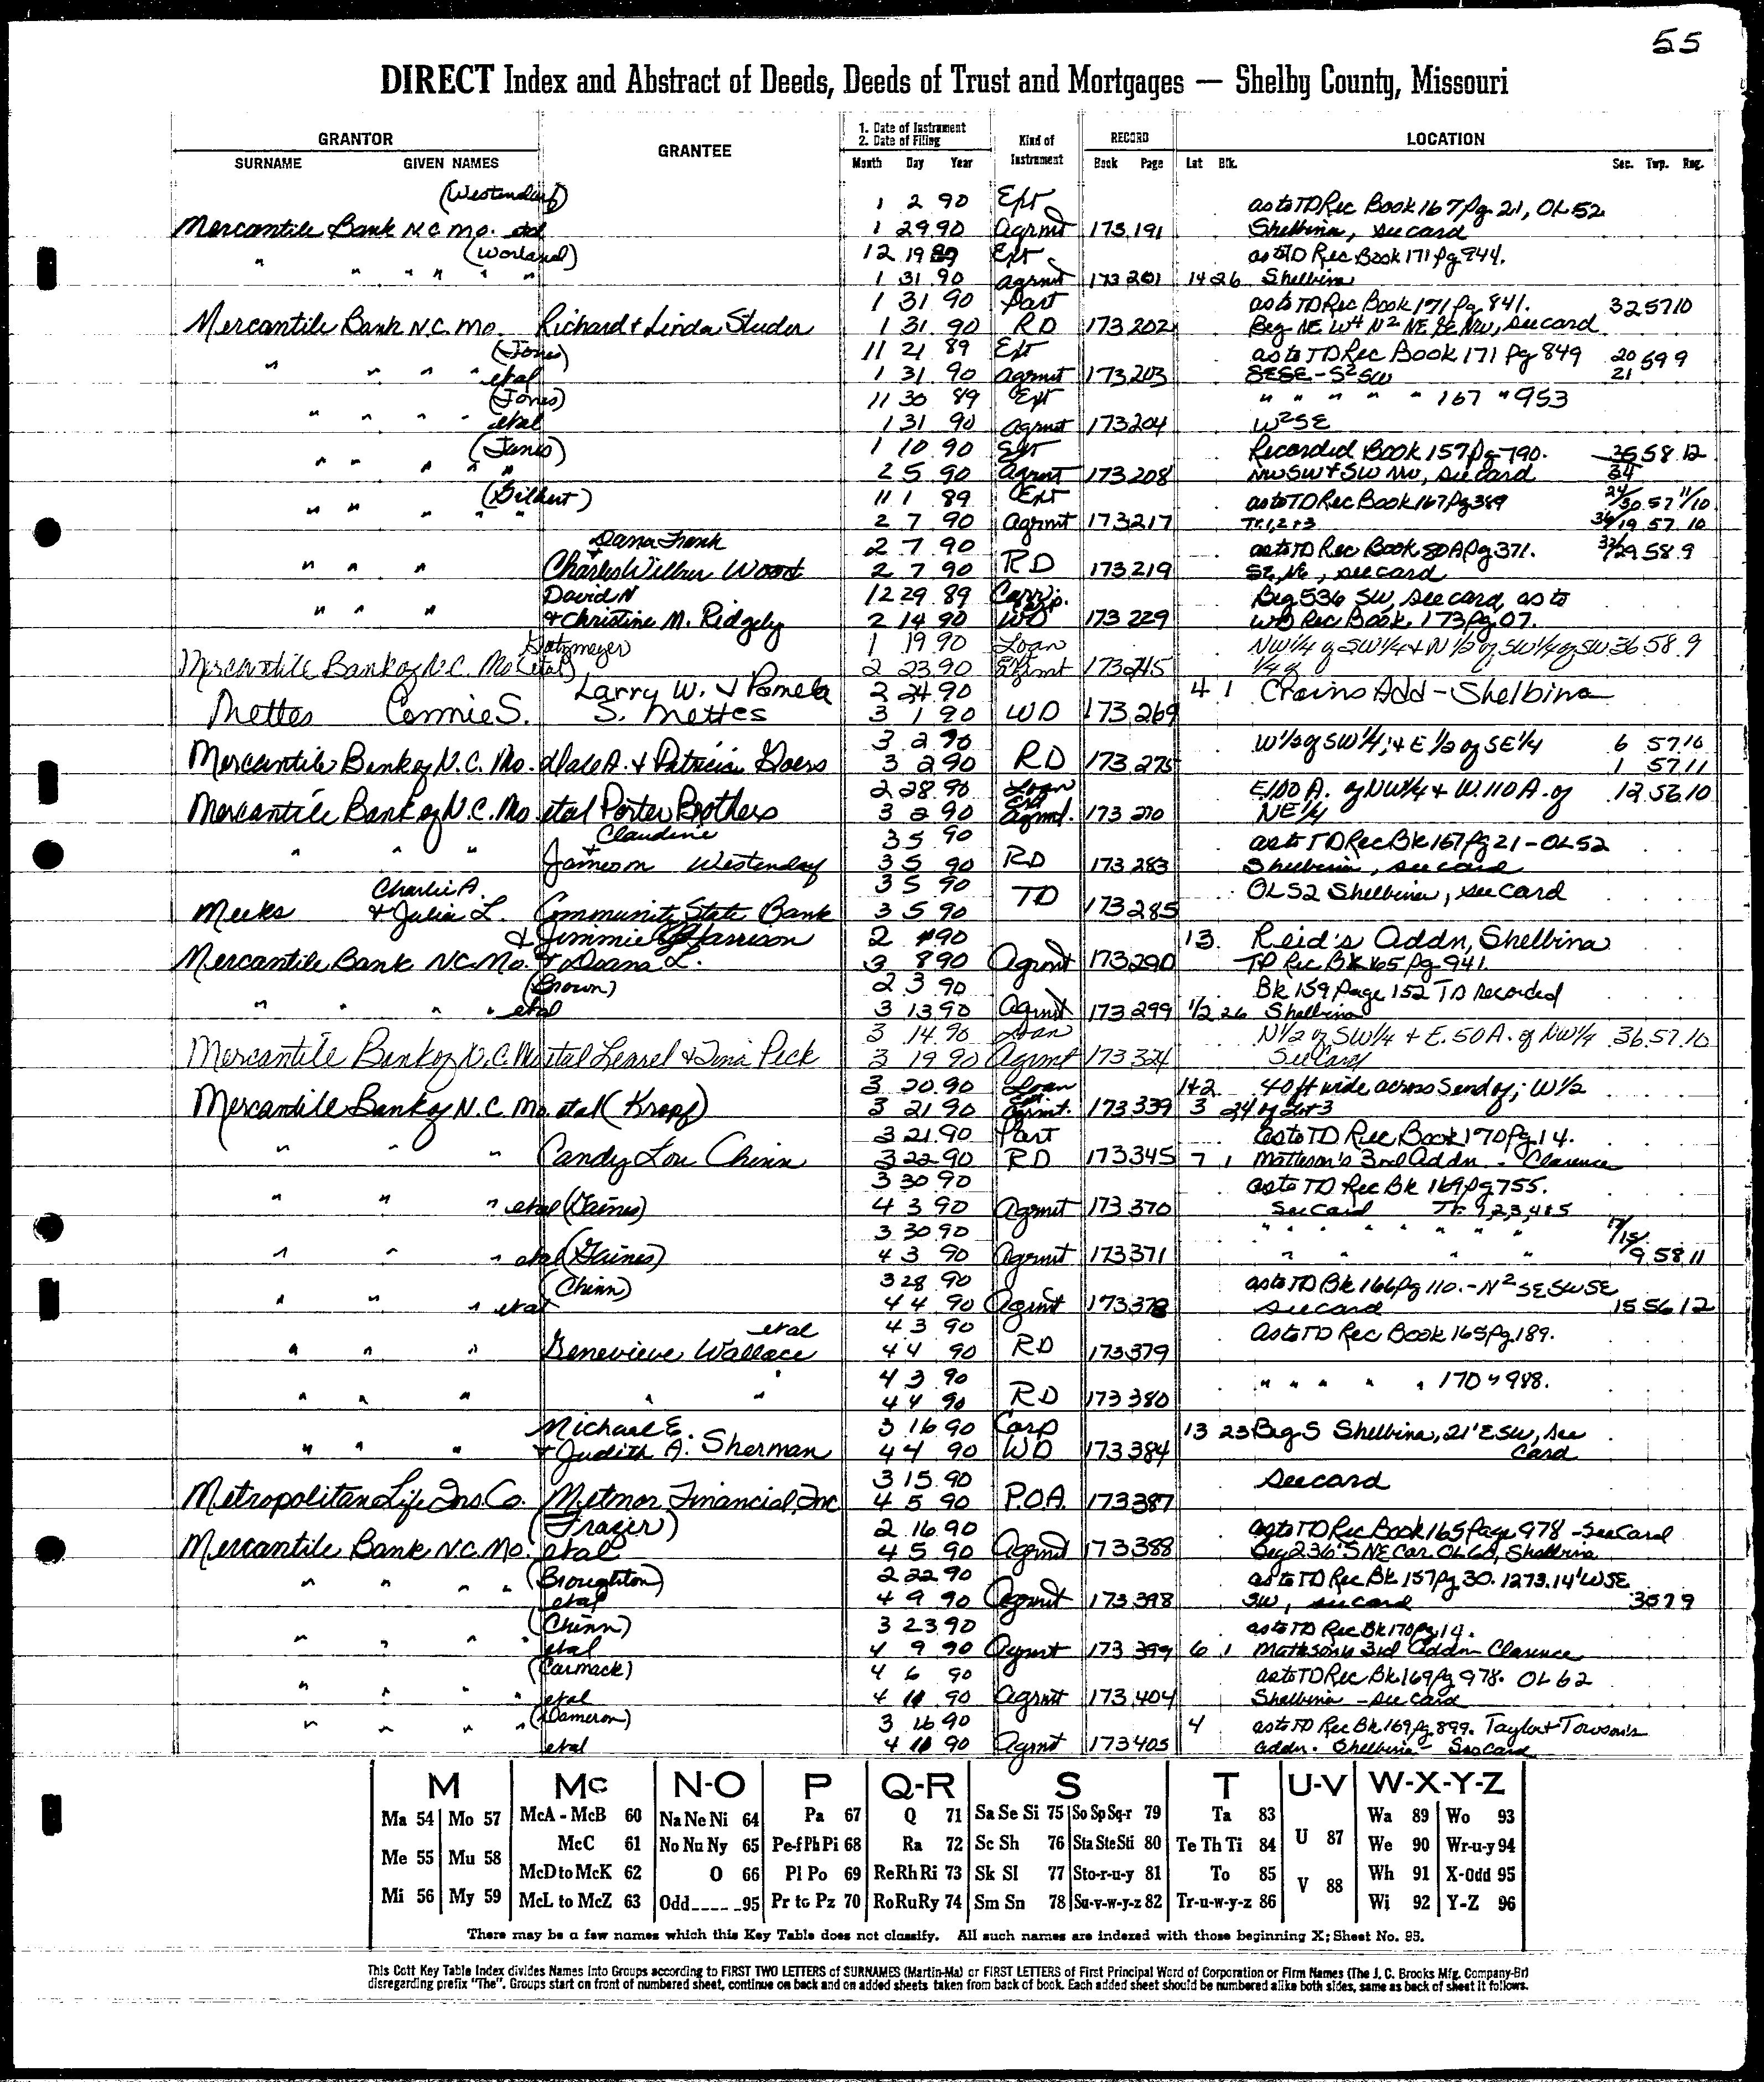 55
DIRECT Index and Abstract of Deeds, Deeds of Trust and Mortgages — Shelby County, Missouri
GRANTOR GRANTEE 1. Date of Instrument 2. Date of Filing Kind of Instrument RECORD LOCATION
SURNAME GIVEN NAMES Month Day Year Book Page Lot Blk. Sec. Twp. Rng.
(Westendorf) 1 2 90 Ext as to TD Rec Book 167 Pg 21, OL 52
Mercantile Bank N.C. Mo. etal 1 29 90 Agrmt 173 191 Shelbina, see card
(Worland) 12 19 89 Ext as to TD Rec Book 171 pg 944.
" " " " " " 1 31 90 agrmt 173 201 14 26 Shelbina
1 31 90 Part as to TD Rec Book 171 Pg 841. 32 57 10
Mercantile Bank N.C. Mo. Richard & Linda Studer 1 31 90 RD 173 202 Beg NE W4 N2 NE SE NW, see card
(Jones) 11 21 89 Ext as to TD Rec Book 171 Pg 849 20 59 9
" " " " etal 1 31 90 agrmt 173 203 SESE - S2SW 21
(Jones) 11 30 89 Ext " " " " " 167 " 953
" " " " etal 1 31 90 agrmt 173 204 W2SE
(Janes) 1 10 90 Ext Recorded Book 157 Pg 790. 35 58 12
" " " " " 2 5 90 agrmt 173 208 NWSW & SW NW, see card 34
(Gilbert) 11 1 89 Ext as to TD Rec Book 167 Pg 389 24/30 57 11/10
" " " " " 2 7 90 Agrmt 173 217 Tr. 1, 2 & 3 36/19 57 10
Dana Frank 2 7 90 as to TD Rec Book 80A Pg 371. 32/29 58 9
" " " & Charles Wilbur Wood 2 7 90 RD 173 219 SE, NE, see card
David N 12 29 89 Corr. Corp. Beg 536 SW, see card, as to
" " " & Christine M. Ridgely 2 14 90 WD 173 229 WD Rec Book 173 Pg 07.
1 19 90 Loan NW1/4 of SW1/4 & N1/2 of SW1/4 of SW 36 58 9
Mercantile Bank of N.C. Mo (etal) 2 23 90 Ext Agrmt 173 245 1/4 of
Larry W. & Pamela 2 24 90 4 1 Crains Add - Shelbina
Mettes Connie S. S. Mettes 3 1 90 WD 173 269
3 2 90 W1/2 of SW1/4; & E1/2 of SE1/4 6 57 10
Mercantile Bank of N.C. Mo. Dale A. & Patricia Goers 3 2 90 RD 173 275 1 57 11
2 28 90 Loan E100 A. of NW1/4 & W. 110 A. of 12 56 10
Mercantile Bank of N.C. Mo etal Porter Brothers 3 2 90 Ext Agrmt. 173 270 NE1/4
Claudine 3 5 90 as to TD Rec Bk 167 Pg 21 - OL 52
" " " & James m Westendorf 3 5 90 RD 173 283 Shelbina, see card
Charlie A. 3 5 90 OL 52 Shelbina, see card
Meeks & Julia L. Community State Bank 3 5 90 TD 173 285
& Jimmie Harrison 2 4 90 13 Reid's Addn, Shelbina
Mercantile Bank N.C. Mo. & Doana L. 3 8 90 Agrmt 173 290 TD Rec Bk 165 Pg 941.
(Brown) 2 3 90 Bk 159 Page 152 TD Recorded
" " " " etal 3 13 90 Agrmt 173 299 1/2 26 Shelbina
3 14 90 Loan N1/2 of SW1/4 & E. 50 A. of NW1/4 36 57 10
Mercantile Bank of N.C. Mo etal & Tina Peck 3 19 90 Agrmt 173 324 See Card
3 20 90 Loan 1+2 40 ft wide across S end of; W1/2
Mercantile Bank of N.C. Mo. etal (Kropf) 3 21 90 Ext. Agrmt. 173 339 3 24 of Lot 3
3 21 90 Part as to TD Rec Book 170 Pg 14.
" " " Candy Lou Chinn 3 22 90 RD 173 345 7 1 Matteson's 3rd Addn - Clarence
3 30 90 as to TD Rec Bk 169 Pg 755.
" " " etal (Gaines) 4 3 90 Agrmt 173 370 See Card Tr. 1,2,3,4&5
3 30 90 " " " " " " "
" " " etal (Gaines) 4 3 90 Agrmt 173 371 " " " " 9 58 11
(Chinn) 3 28 90 as to TD Bk 166 Pg 110. - N2 SE SW SE
" " " etal 4 4 90 Agrmt 173 378 see card 15 56 12
etal 4 3 90 As to TD Rec Book 165 Pg 189.
" " " Genevieve Wallace 4 4 90 RD 173 379
4 3 90 " " " " " 170 " 988.
" " " " " 4 4 90 RD 173 380
Michael E. 3 16 90 Corp 13 23 Beg S Shelbina, 21' E SW, see
" " " & Judith A. Sherman 4 4 90 WD 173 384 Card
3 15 90 see card
Metropolitan Life Ins. Co. Metmor Financial, Inc 4 5 90 P.O.A. 173 387
(Frazer) 2 16 90 as to TD Rec Book 165 Page 978 - See Card
Mercantile Bank N.C. Mo. etal 4 5 90 Agrmt 173 388 Beg 236' S NE Cor. OL 60, Shelbina
(Broughton) 2 22 90 as to TD Rec Bk 157 Pg 30. 1273.14' W SE
" " " " etal 4 9 90 Agrmt 173 398 SW, see card 35 7 9
(Chinn) 3 23 90 as to TD Rec Bk 170 Pg 14.
" " " " etal 4 9 90 Agrmt 173 399 6 1 Mattesons 3rd Addn Clarence
(Carmack) 4 6 90 as to TD Rec Bk 169 Pg 978. OL 62
" " " " etal 4 11 90 Agrmt 173 404 Shelbina - see card
(Dameron) 3 16 90 4 as to TD Rec Bk 169 Pg 899. Taylor & Towson's
" " " " etal 4 11 90 Agrmt 173 405 addn. Shelbina - See Card
M Mc N-O P Q-R S T U-V W-X-Y-Z
Ma 54 Mo 57 McA - McB 60 Na Ne Ni 64 Pa 67 Q 71 Sa Se Si 75 So Sp Sq-r 79 Ta 83 U 87 Wa 89 Wo 93
Me 55 Mu 58 McC 61 No Nu Ny 65 Pe-f Ph Pi 68 Ra 72 Sc Sh 76 Sta Ste Sti 80 Te Th Ti 84 We 90 Wr-u-y 94
McD to McK 62 O 66 Pl Po 69 Re Rh Ri 73 Sk Sl 77 Sto-r-u-y 81 To 85 V 88 Wh 91 X-Odd 95
Mi 56 My 59 McL to McZ 63 Odd 95 Pr to Pz 70 Ro Ru Ry 74 Sm Sn 78 Su-v-w-y-z 82 Tr-u-w-y-z 86 Wi 92 Y-Z 96
There may be a few names which this Key Table does not classify. All such names are indexed with those beginning X; Sheet No. 95.
This Cott Key Table Index divides Names Into Groups according to FIRST TWO LETTERS of SURNAMES (Martin-Ma) or FIRST LETTERS of First Principal Word of Corporation or Firm Names (The J. C. Brooks Mfg. Company-Br)
disregarding prefix "The". Groups start on front of numbered sheet, continue on back and on added sheets taken from back of book. Each added sheet should be numbered alike both sides, same as back of sheet it follows.